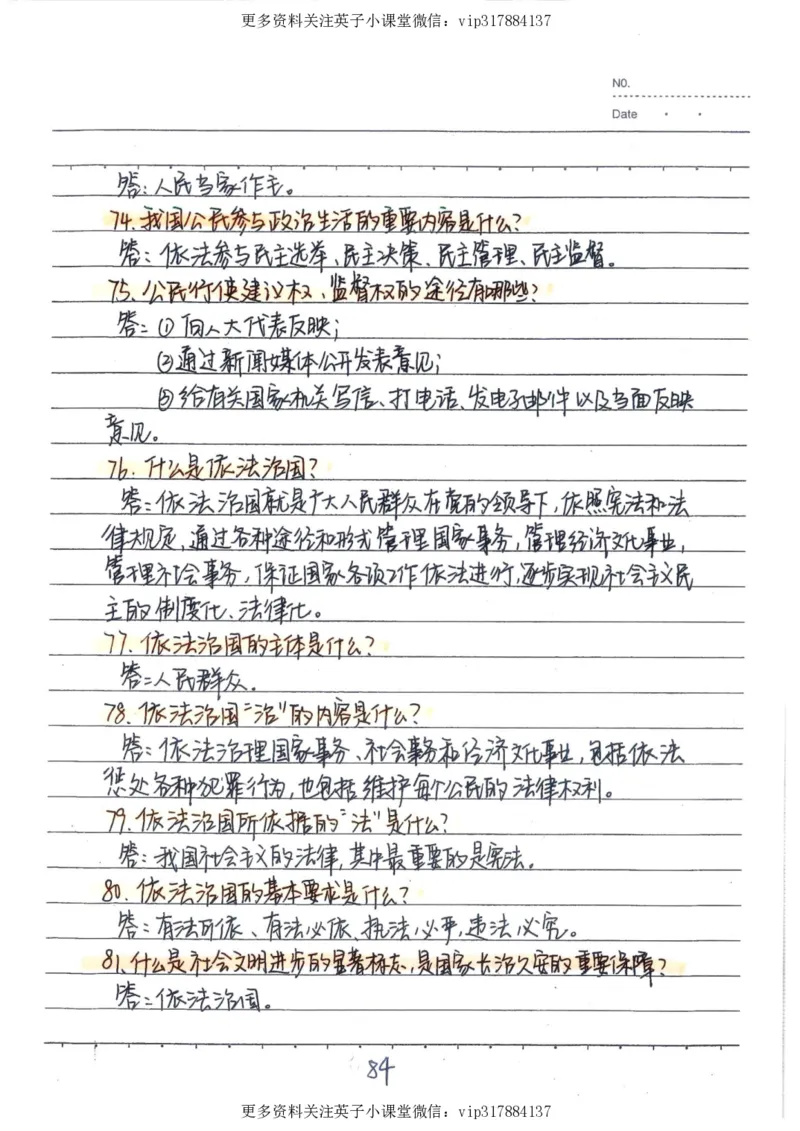 更多资料关注英子小课堂微信：vip317884137
NO.
Date
答：人民当家作主。
74.我国公民参与政治生活的重要内容是什么？
答：依法参与民主选举、民主决策、民主管理、民主监督。
75.公民行使建议权、监督权的途径有哪些？
答：①向人大代表反映；
②通过新闻媒体公开发表意见；
③给有关国家机关写信、打电话、发电子邮件以及当面反映
意见。
76.什么是依法治国？
答：依法治国就是广大人民群众在党的领导下，依照宪法和法
律规定，通过各种途径和形式管理国家事务，管理经济文化事业，
管理社会事务，保证国家各项工作依法进行，逐步实现社会主义民
主的制度化、法律化。
77.依法治国的主体是什么？
答：人民群众。
78.依法治国“治”的内容是什么？
答：依法治理国家事务、社会事务和经济文化事业，包括依法
惩处各种犯罪行为，也包括维护每个公民的法律权利。
79.依法治国所依据的“法”是什么？
答：我国社会主义的法律，其中最重要的是宪法。
80.依法治国的基本要求是什么？
答：有法可依、有法必依、执法必严，违法必究。
81.什么是社会文明进步的显著标志，是国家长治久安的重要保障？
答：依法治国。
84
更多资料关注英子小课堂微信：vip317884137